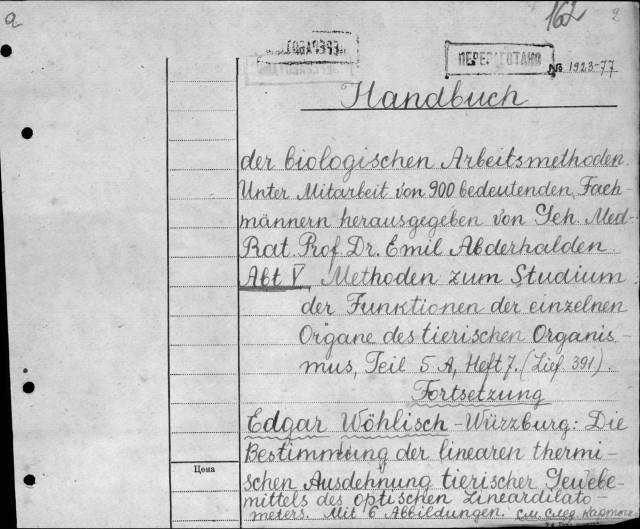 a
162 2
ПЕРЕРАБОТАНО
ПЕРЕРАБОТАНО № 1923-77
Handbuch
der biologischen Arbeitsmethoden.
Unter Mitarbeit von 900 bedeutenden Fach-
männern herausgegeben von Geh. Med-
Rat. Prof. Dr. Emil Abderhalden.
Abt V Methoden zum Studium
der Funktionen der einzelnen
Organe des tierischen Organis-
mus, Teil 5 A, Heft 7. (Lief 391).
Fortsetzung
Edgar Wöhlisch - Würzburg: Die
Bestimmung der linearen thermi-
Цена
schen Ausdehnung tierischer Gewebe-
mittels des optischen Lineardilato-
meters. Mit 6 Abbildungen. см. след. карточ